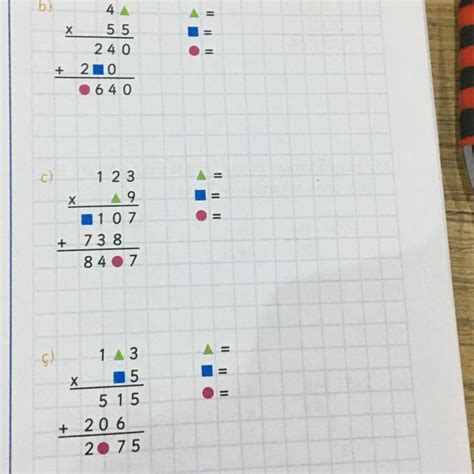 b)
4▲ ▲ =
x 55 ■ =
240 ● =
+ 2■0
●640
c)
123 ▲ =
x ▲9 ■ =
■107 ● =
+ 738
84●7
ç)
1▲3 ▲ =
x ■5 ■ =
515 ● =
+ 206
2●75